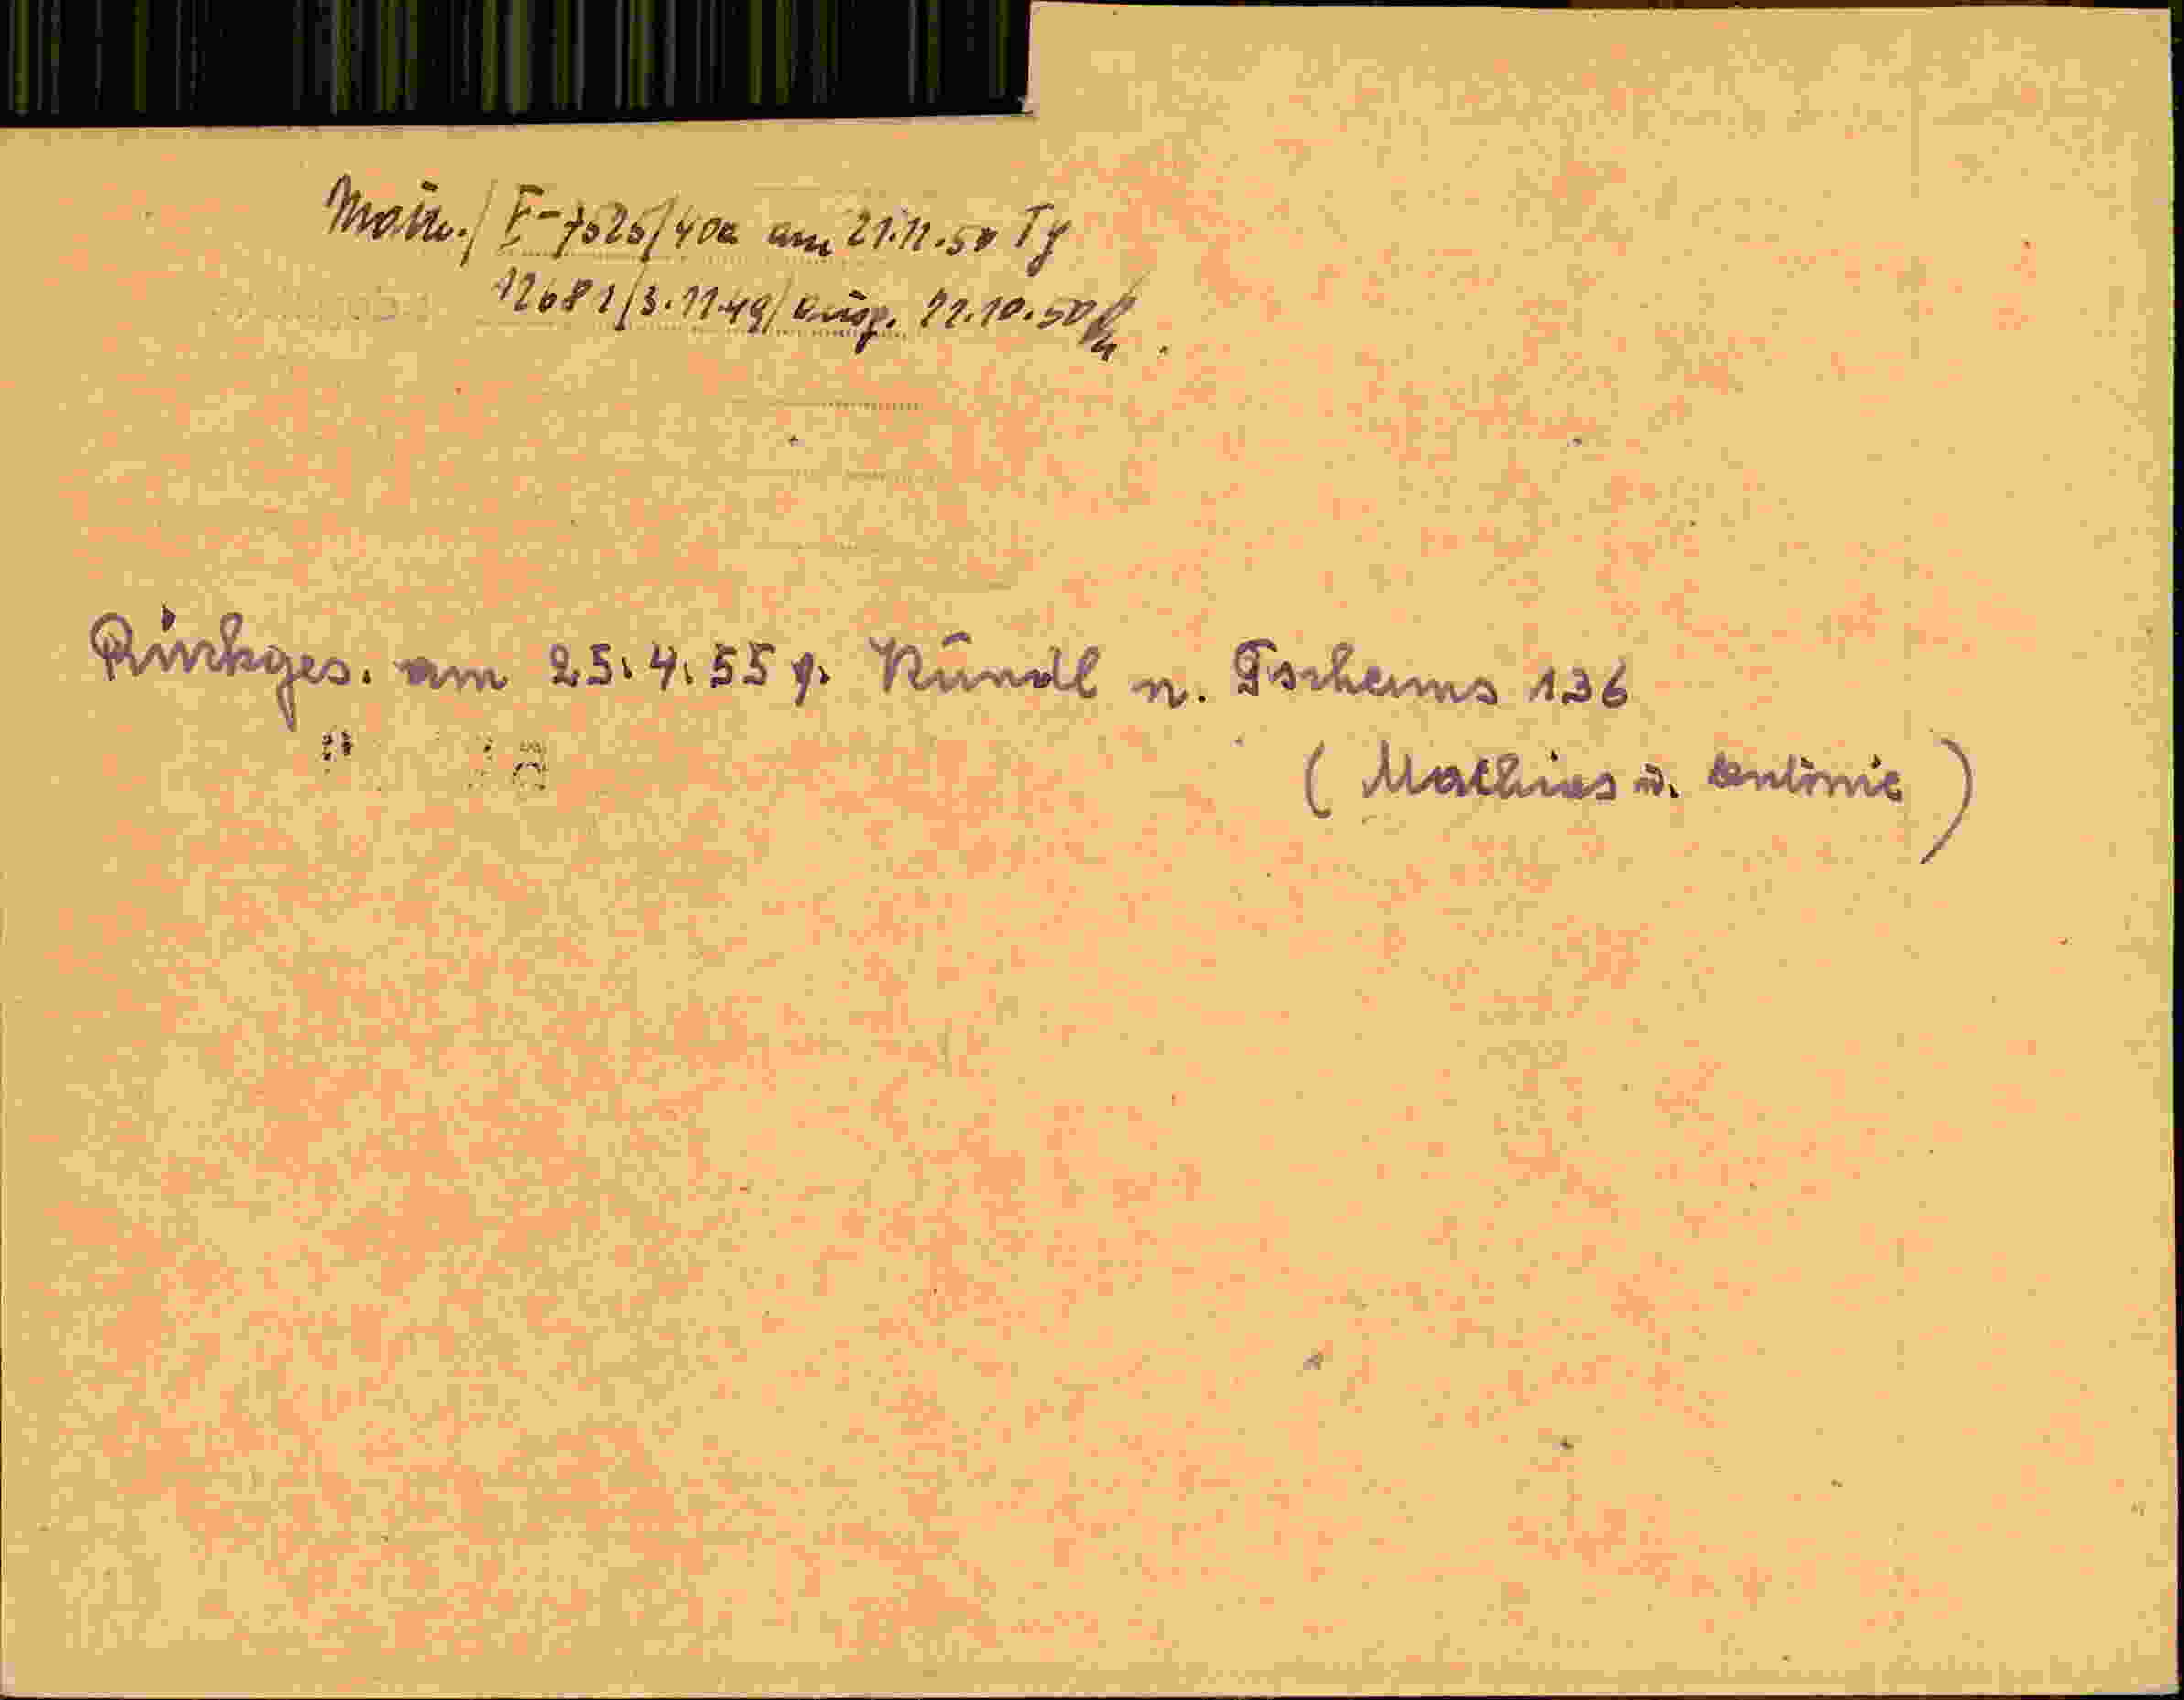 E-7525/40a am 21.11.50 Ty
12681/3.11.49/ausg. 21.10.50
Rückges. am 25.4.55 g. Kündl n. Tscherms 136
(Mathias u. Antonie)